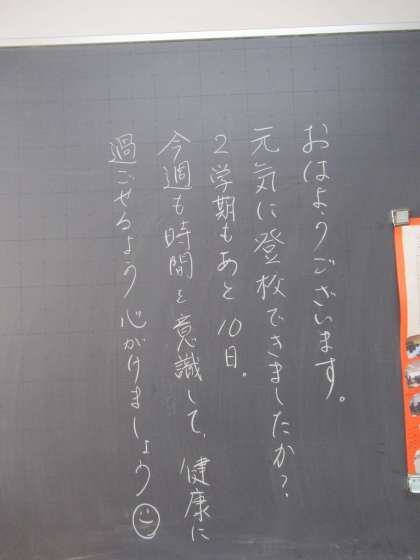 おはようございます。
元気に登校できましたか?
2学期もあと10日。
今週も時間を意識して、健康に
過ごせるよう心がけましょう